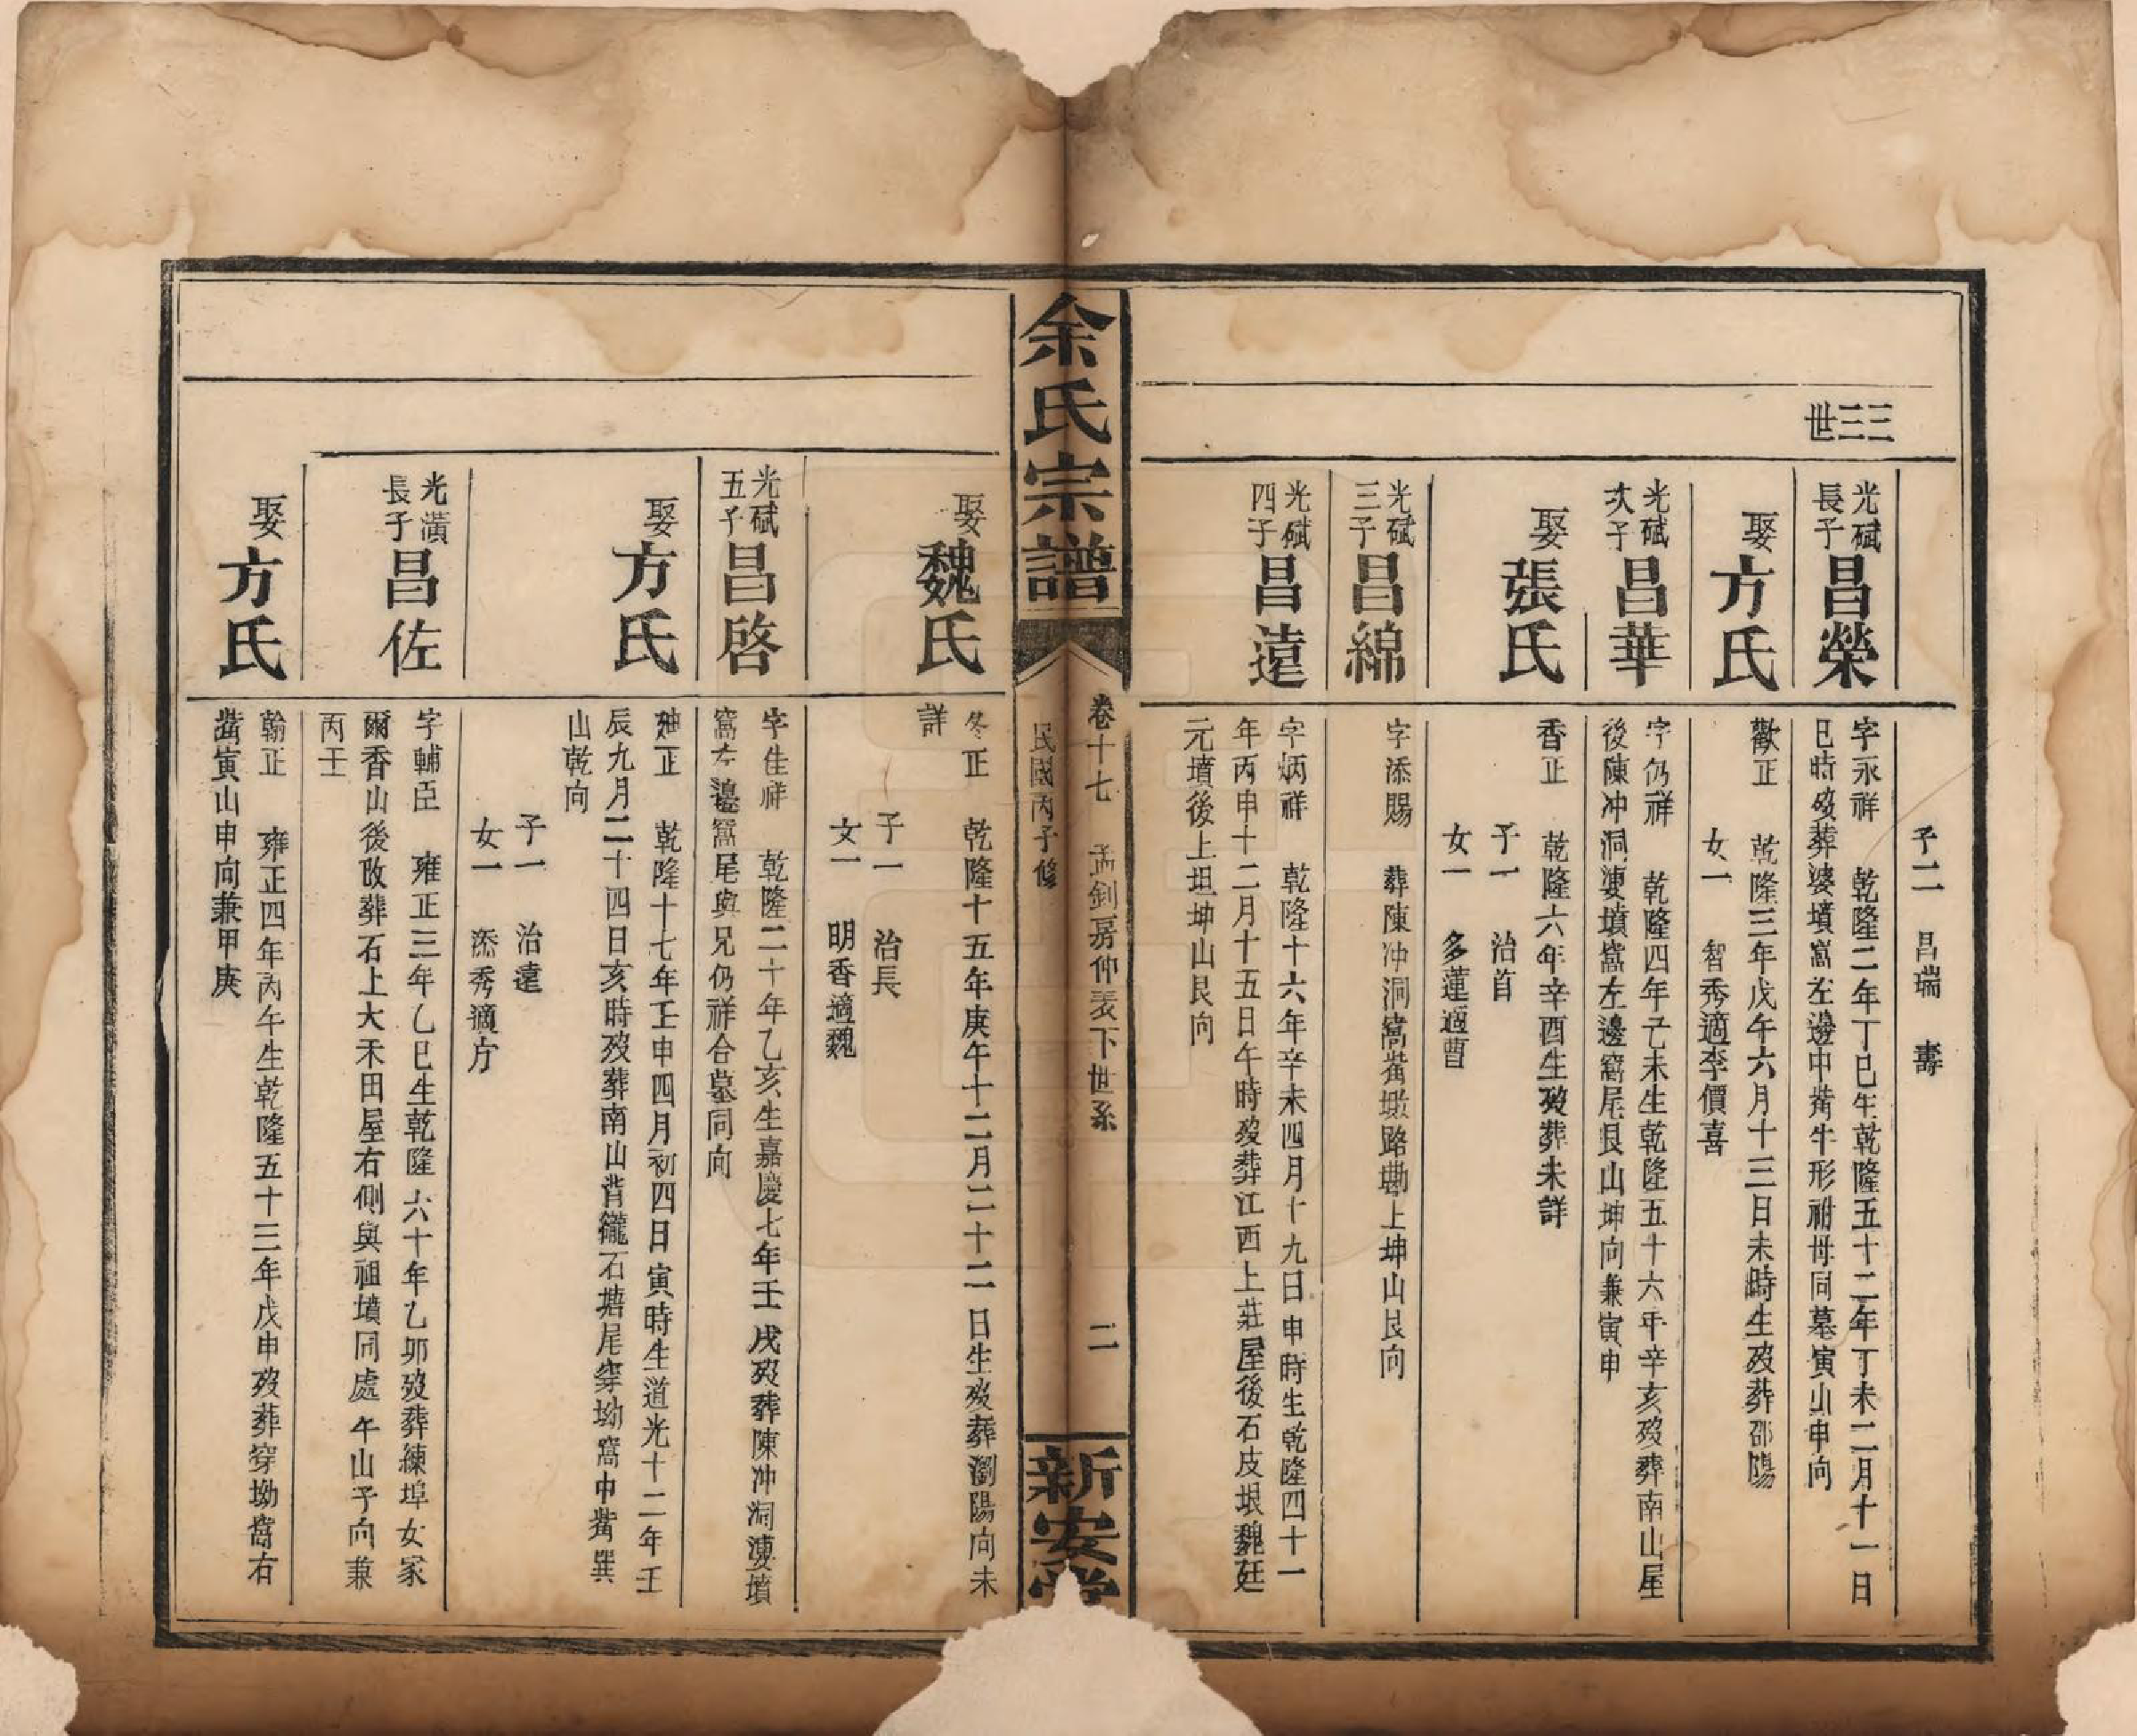 三三世
子二　昌瑞　壽
光斌長子
昌榮
字永祥　乾隆二年丁巳生乾隆五十二年丁未二月十一日
巳時歿葬婆墳窩左邊中嘴牛形祔母同墓寅山申向
娶方氏
歡正　乾隆三年戊午六月十三日未時生歿葬邵陽
女一　智秀適李價喜
光斌次子
昌華
字仍祥　乾隆四年己未生乾隆五十六年辛亥歿葬南山屋
後陳冲洞婆墳窩左邊窩尾艮山坤向兼寅申
娶張氏
香正　乾隆六年辛酉生歿葬未詳
子一　治首
女一　多蓮適曹
光斌三子
昌綿
字添賜　葬陳冲洞窩嘴墩路墈上坤山艮向
光斌四子
昌遠
字炳祥　乾隆十六年辛未四月十九日申時生乾隆四十一
年丙申十二月十五日午時歿葬江西上莊屋後石皮垠魏廷
元墳後上坦坤山艮向
余氏宗譜
卷十七　孟釗房仲表下世系　二
民國丙子修
新安堂
娶魏氏
冬正　乾隆十五年庚午十二月二十二日生歿葬瀏陽向未
詳
子一　治長
女一　明香適魏
光斌五子
昌啓
字佳祥　乾隆二十年乙亥生嘉慶七年壬戌歿葬陳冲洞婆墳
窩左邊窩尾與兄仍祥合墓同向
娶方氏
正　乾隆十七年壬申四月初四日寅時生道光十二年壬
辰九月二十四日亥時歿葬南山背石塘尾穿坳窩中嘴巽
山乾向
子一　治遠
女一　添秀適方
光潢長子
昌佐
字輔臣　雍正三年乙巳生乾隆六十年乙卯歿葬練埠女家
爾香山後改葬石上大禾田屋右側與祖墳同處午山子向兼
丙壬
娶方氏
翰正　雍正四年丙午生乾隆五十三年戊申歿葬穿坳窩右
嘴寅山申向兼甲庚